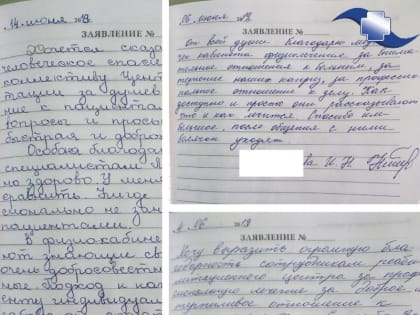 14 июня 2018
ЗАЯВЛЕНИЕ №
Хочется сказа
человеческое спасиб
коллективу Цент
тации за душев
ние к пациентам
вопросы и прось
быстрая и добро
Особая благода
специалистам
но здорово. У меня
сравнить. Нигде
сионально не зан
пациентами.
В физиокабине
ют знающие св
очень добросовестн
подход к
енту индивидуал
26 июня 2018
ЗАЯВЛЕНИЕ №
От всей души благодарю
кабинета физиолечения за внима
тельное отношение к больным, за
наших каприз, за професси
нальное отношение к делу. Как
доступно и просто они рассказывают
что и как лечится. Спасибо им
большое, после общения с ними
болячки уходят.
ва И. Н.
06 2018
ЗАЯВЛЕНИЕ №
Хочу выразить огромную бла
годарность сотрудникам реаби
литационного центра за проф
сиональную лечение за доброе и
терпеливое отношение к